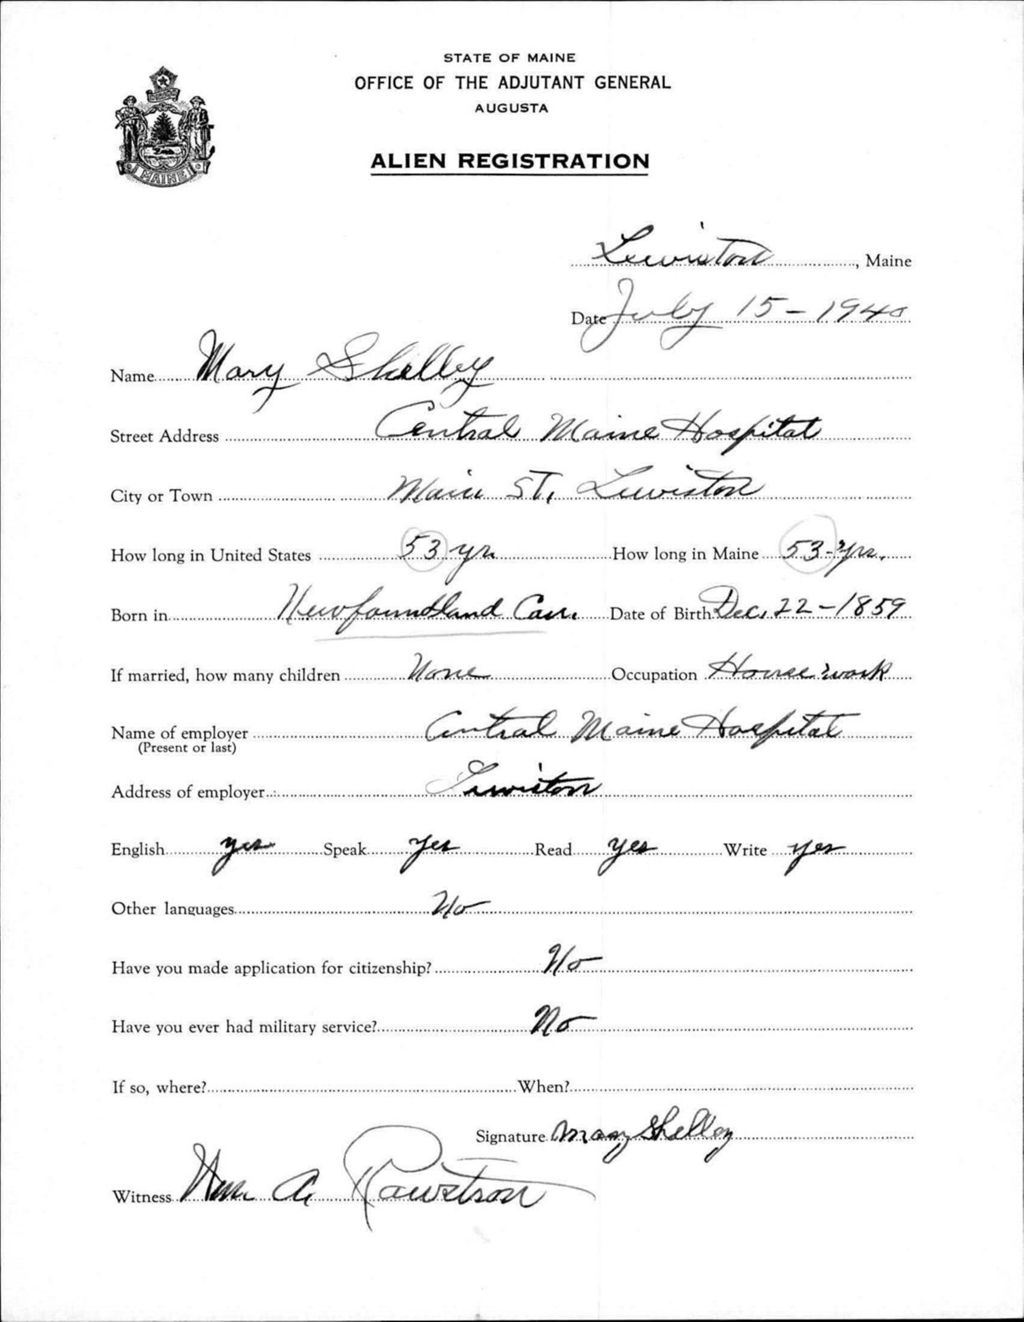 STATE OF MAINE
OFFICE OF THE ADJUTANT GENERAL
AUGUSTA
ALIEN REGISTRATION
MAINE
Lewiston, Maine
Date July 15-1940
Name Mary Shelley
Street Address Central Maine Hospital
City or Town Main St, Lewiston
How long in United States 53 yr How long in Maine 53-yrs.
Born in Newfoundland Can. Date of Birth Dec, 22-1859
If married, how many children None Occupation House work
Name of employer Central Maine Hospital
(Present or last)
Address of employer Lewiston
English yes Speak yes Read yes Write yes
Other languages No
Have you made application for citizenship? No
Have you ever had military service? No
If so, where? When?
Signature Mary Shelley
Witness Wm A. Rawstron